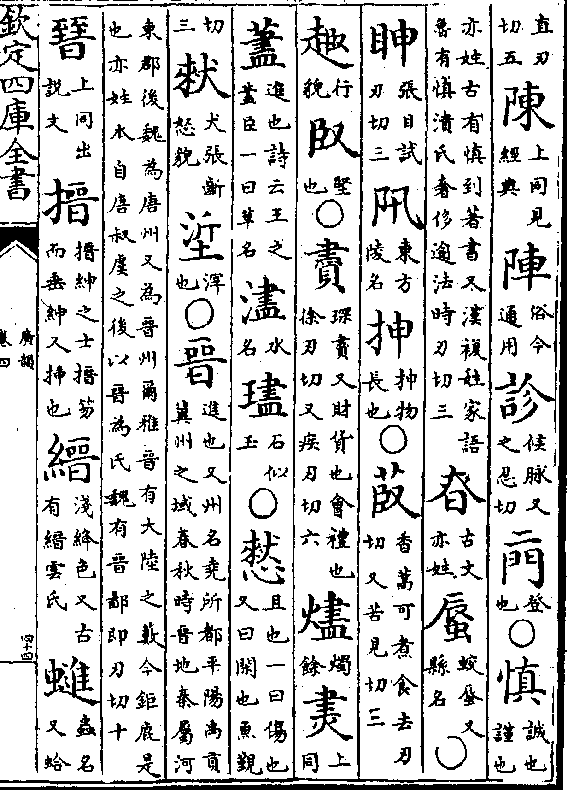 直刃切五陳上同見經典陣俗今通用診候脉又之忍切𨳿登也○慎誠也謹也
亦姓古有慎到著書又漢複姓家語魯有慎潰氏奢侈逾法時刃切三㖘古文亦姓蜃蛟蜃又縣名○
眒張目試刃切三阠東方陵名抻抻物長也○菣香蒿可煮食去刃切又苦見切三
趣行貌臤堅也○賮琛賮又財貨也會禮也徐刃切又疾刃切六燼燭餘㶳上同
藎進也詩云王之藎臣一曰草名濜水名璶石似玉○憖且也一曰傷也又曰閑也魚覲
切三猌犬張齗怒貌垽滓也○晉進也又州名堯所都平陽禹貢冀州之域春秋時晉地秦屬河
東郡後魏為唐州又為晉州爾雅晉有大陸之藪今鉅鹿是也亦姓本自唐叔虞之後以晉為氏魏有晉鄙即刃切十
㬜上同出說文搢搢紳之士搢笏而垂紳又插也縉淺絳色又古有縉雲氏蜼蟲名又蛤
欽定四庫全書
廣韻
卷四